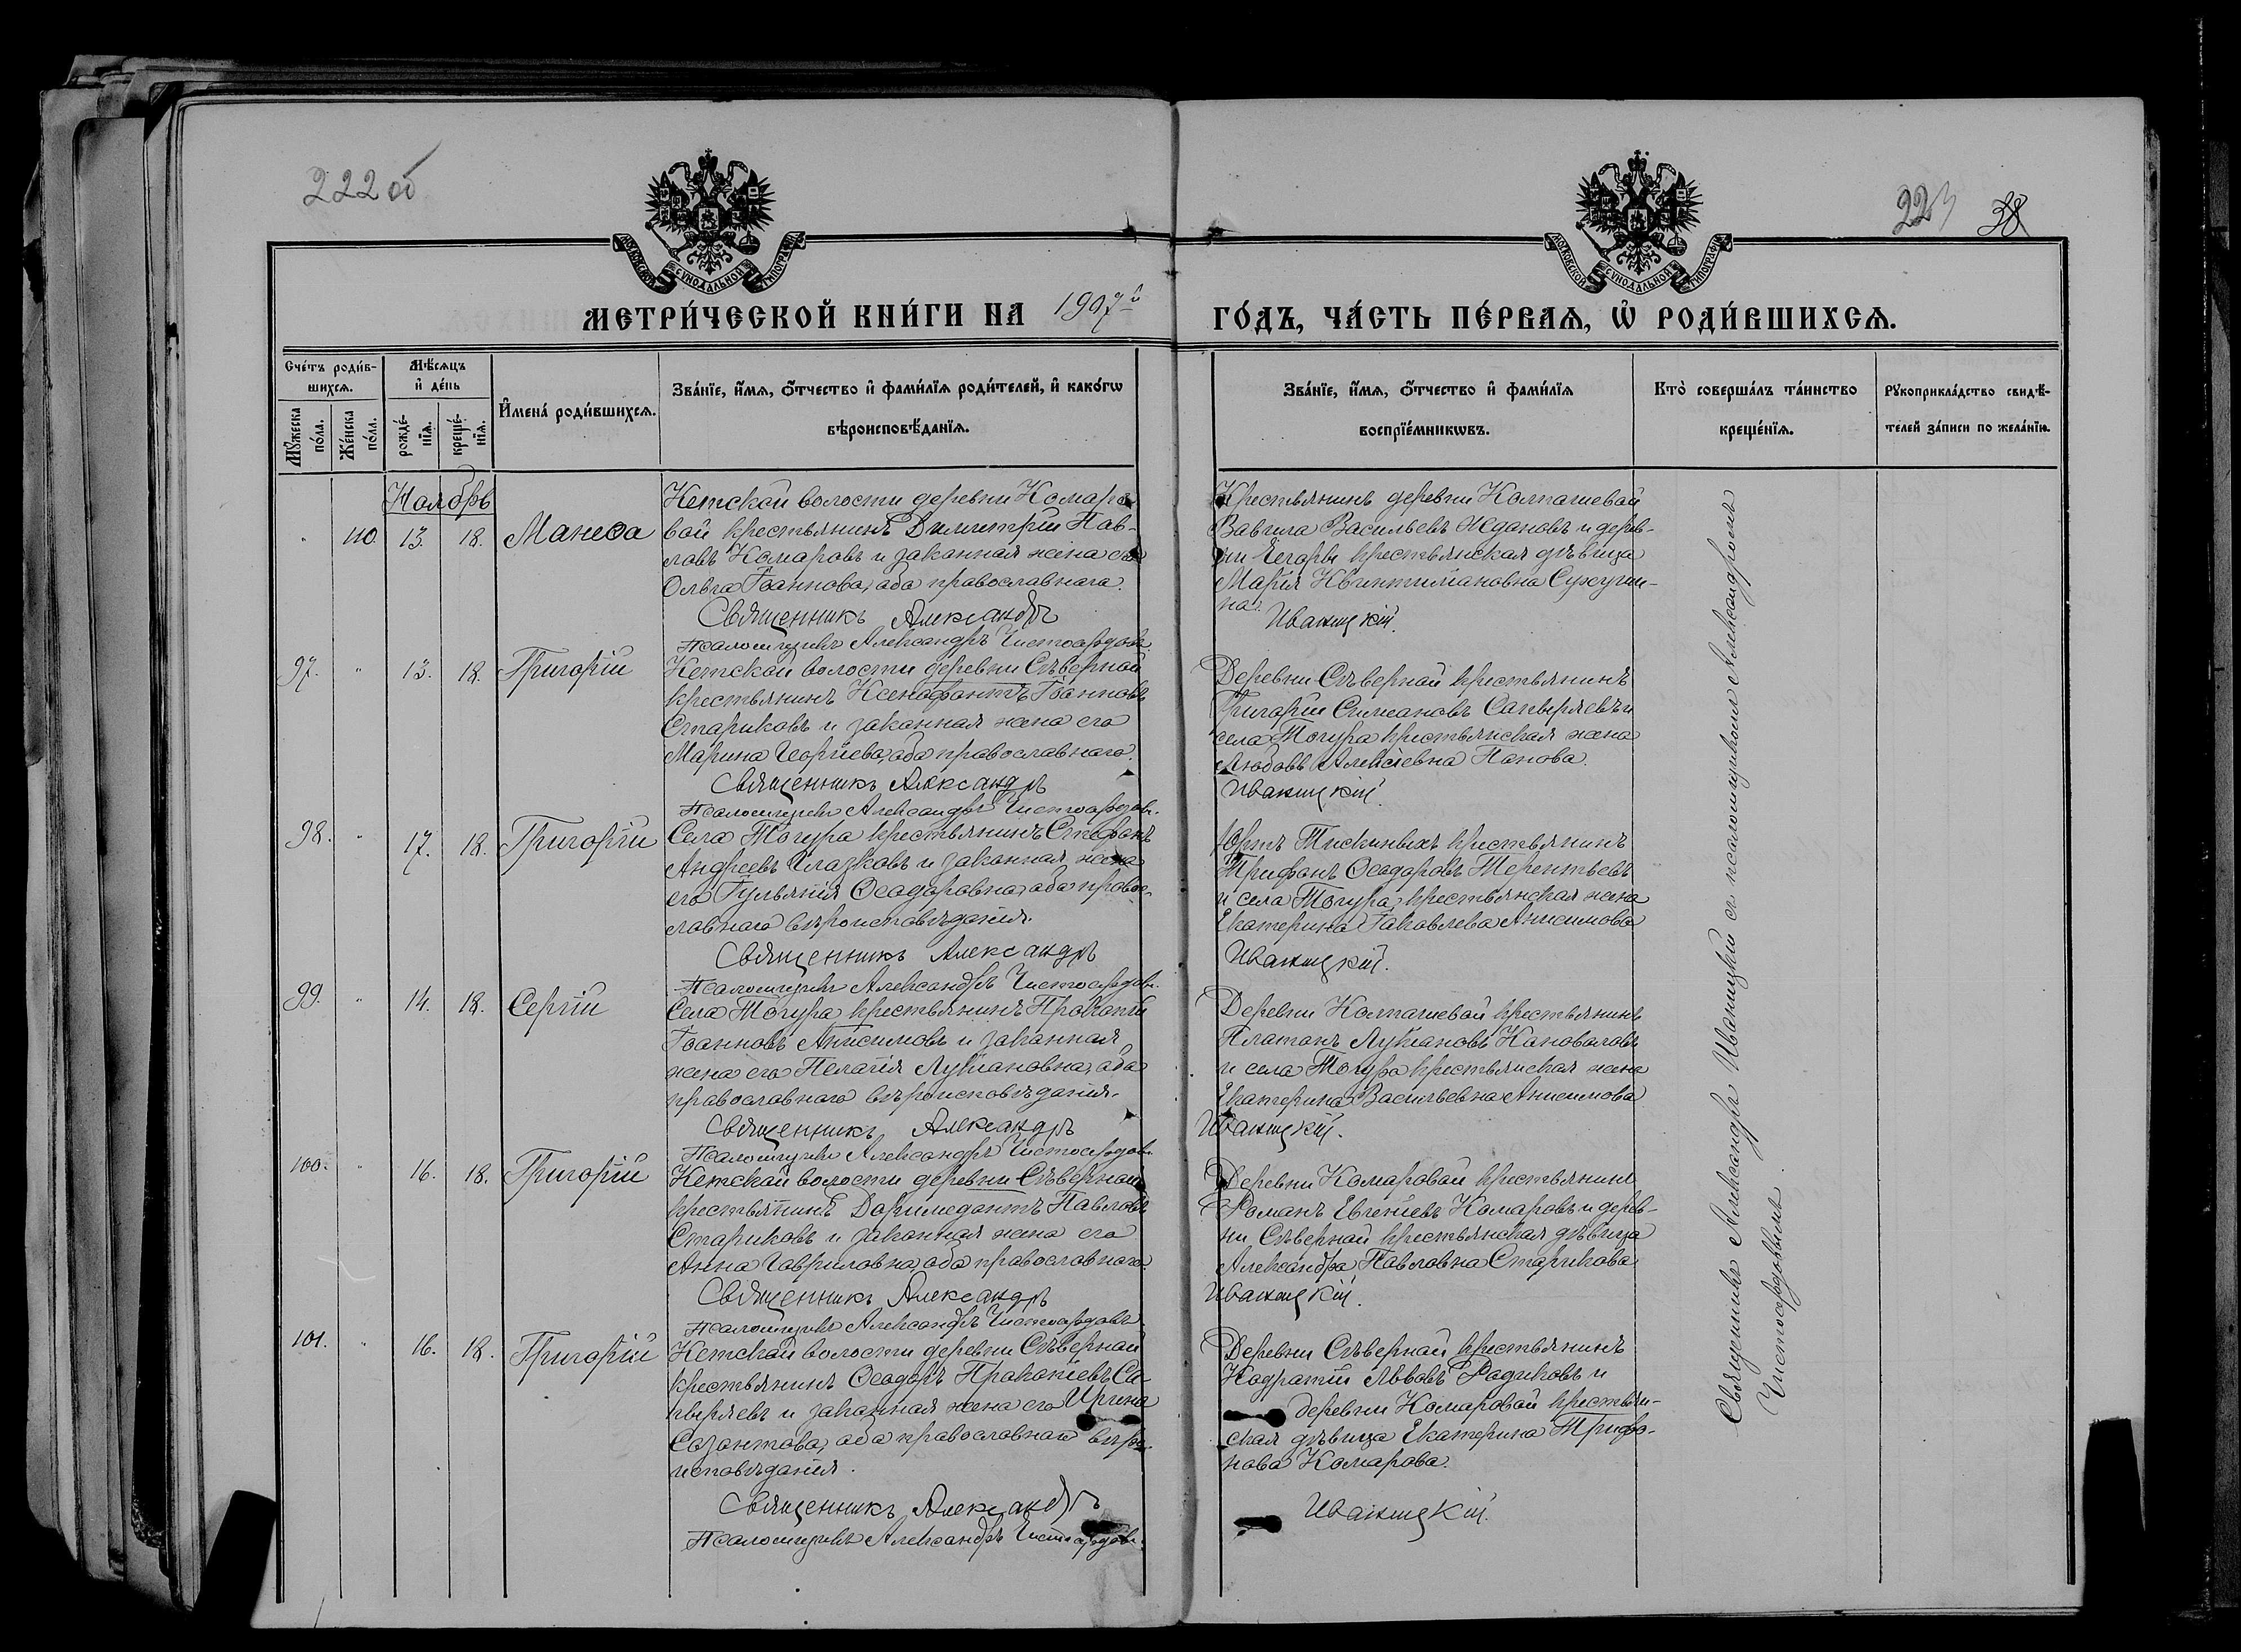 222 об
223 38
МОСКОВСКОЙ СУНОДАЛЬНОЙ ТИПОГРАФІИ
МОСКОВСКОЙ СУНОДАЛЬНОЙ ТИПОГРАФІИ
МЕТРИ́ЧЕСКОЙ КНИ́ГИ НА 1907й
ГО́ДЪ, ЧА́СТЬ ПЕ́РВАѦ, Ѡ҆ РОДИ́ВШИХСѦ.
Сче́тъ роди́в-
шихсѧ.
Мѣ́сѧцъ
и҆ де́нь
И҆мена̀ роди́вшихсѧ.
Зва́нїе, и҆́мѧ, ѻ҆́тчество и҆ фами́лїѧ роди́телей, и҆ како́гѡ
вѣроисповѣ́данїѧ.
Мꙋ́жеска
по́ла.
Же́нска
по́ла.
рожде́-
нїѧ.
креще́-
нїѧ.
Зва́нїе, и҆́мѧ, ѻ҆́тчество и҆ фами́лїѧ
воспрїе́мникѡвъ.
Кто̀ соверша́лъ та́инство
креще́нїѧ.
Рꙋкоприкла́дство свидѣ́-
телей за́писи по жела́нїю.
Ноябрь
" 110. 13. 18. Манефа
Кетской волости деревни Комаро-
вой крестьянинъ Димитрій Пав-
ловъ Комаровъ и законная жена его
Ольга Іоаннова, оба православнаго.
Священникъ Александръ
Псаломщикъ Александръ Чистосердовъ.
Крестьянинъ деревни Колпашевой
Вавила Васильевъ Ждановъ и дерев-
ни Егоры крестьянская дѣвица
Марія Квинтиліановна Сухуши-
на.
Иваницкій.
97. " 13. 18. Григорій
Кетской волости деревни Сѣверной
крестьянинъ Ксенофонтъ Іоанновъ
Стариковъ и законная жена его
Марина Георгіева, оба православнаго.
Священникъ Александръ
Псаломщикъ Александръ Чистосердовъ.
Деревни Сѣверной крестьянинъ
Григорій Симеоновъ Сапыряевъ и
села Тогура крестьянская жена
Любовь Алексіевна Панова.
Иваницкій.
98. " 17. 18. Григорій
Села Тогура крестьянинъ Стефанъ
Андреевъ Глазковъ и законная жена
его Гульянія Ѳеодоровна, оба право-
славнаго вѣроисповѣданія.
Священникъ Александръ
Псаломщикъ Александръ Чистосердовъ.
Юртъ Тискиныхъ крестьянинъ
Трифонъ Ѳеодоровъ Терентьевъ
и села Тогура крестьянская жена
Екатерина Іаковлева Анисимова
Иваницкій.
99. " 14. 18. Сергій
Села Тогура крестьянинъ Прокопій
Іоанновъ Анисимовъ и законная
жена его Пелагія Лукіановна, оба
православнаго вѣроисповѣданія.
Священникъ Александръ
Псаломщикъ Александръ Чистосердовъ.
Деревни Колпашевой крестьянинъ
Платонъ Лукіановъ Коноваловъ
и села Тогура крестьянская жена
Екатерина Васильевна Анисимова
Иваницкій.
100. " 16. 18. Григорій
Кетской волости деревни Сѣверной
крестьянинъ Доримедонтъ Павловъ
Стариковъ и законная жена его
Анна Гавриловна, оба православнаго.
Священникъ Александръ
Псаломщикъ Александръ Чистосердовъ
Деревни Комаровой крестьянинъ
Романъ Евгеніевъ Комаровъ и дерев-
ни Сѣверной крестьянская дѣвица
Александра Павловна Старикова
Иваницкій.
101. " 16. 18. Григорій
Кетской волости деревни Сѣверной
крестьянинъ Ѳеодоръ Прокопіевъ Са-
пыряевъ и законная жена его Ирина
Созонтова, оба православнаго вѣро-
исповѣданія.
Священникъ Александръ
Псаломщикъ Александръ Чистосердовъ.
Деревни Сѣверной крестьянинъ
Кодратій Львовъ Родиковъ и
деревни Комаровой крестьян-
ская дѣвица Екатерина Трифо-
нова Комарова.
Иваницкій.
Священникъ Александръ Иваницкій съ псаломщикомъ Александромъ
Чистосердовымъ.